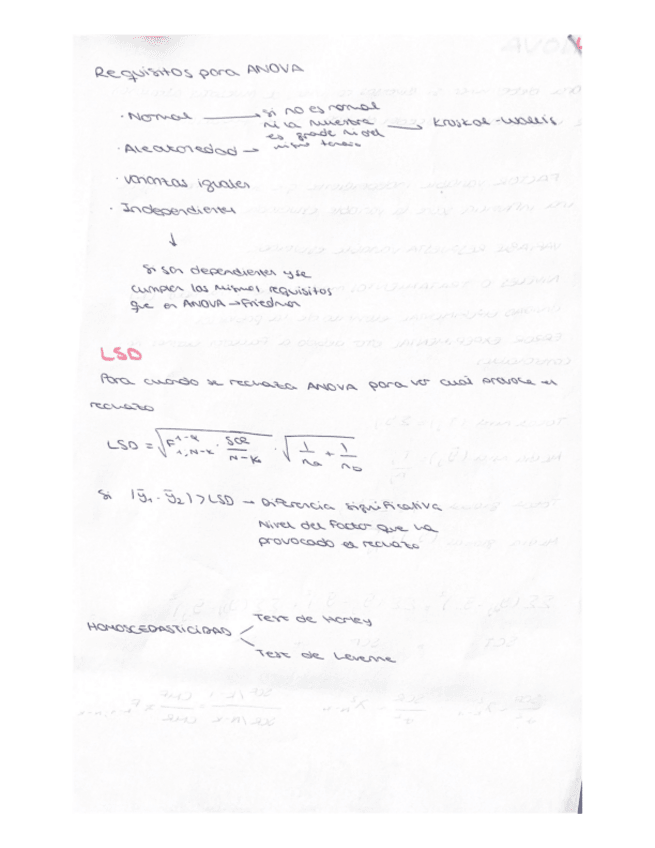 Requisitos para ANOVA
· Normal → si no es normal
ni la muestra → Kruskal-Wallis
es grande ni del
mismo tamaño
· Aleatoriedad →
· Varianzas iguales
· Independientes
↓
Si son dependientes y se
cumplen los mismos requisitos
que en ANOVA → Friedman
LSD
Para cuando se rechaza ANOVA para ver cual provoca el
rechazo
LSD = √(F^{1-α}_{1, N-K} · SCR / N-K) · √(1/na + 1/nb)
Si |ȳ1 - ȳ2| > LSD → Diferencia significativa
Nivel del factor que ha
provocado el rechazo
HOMOSCEDASTICIDAD
Test de
Test de Levenne